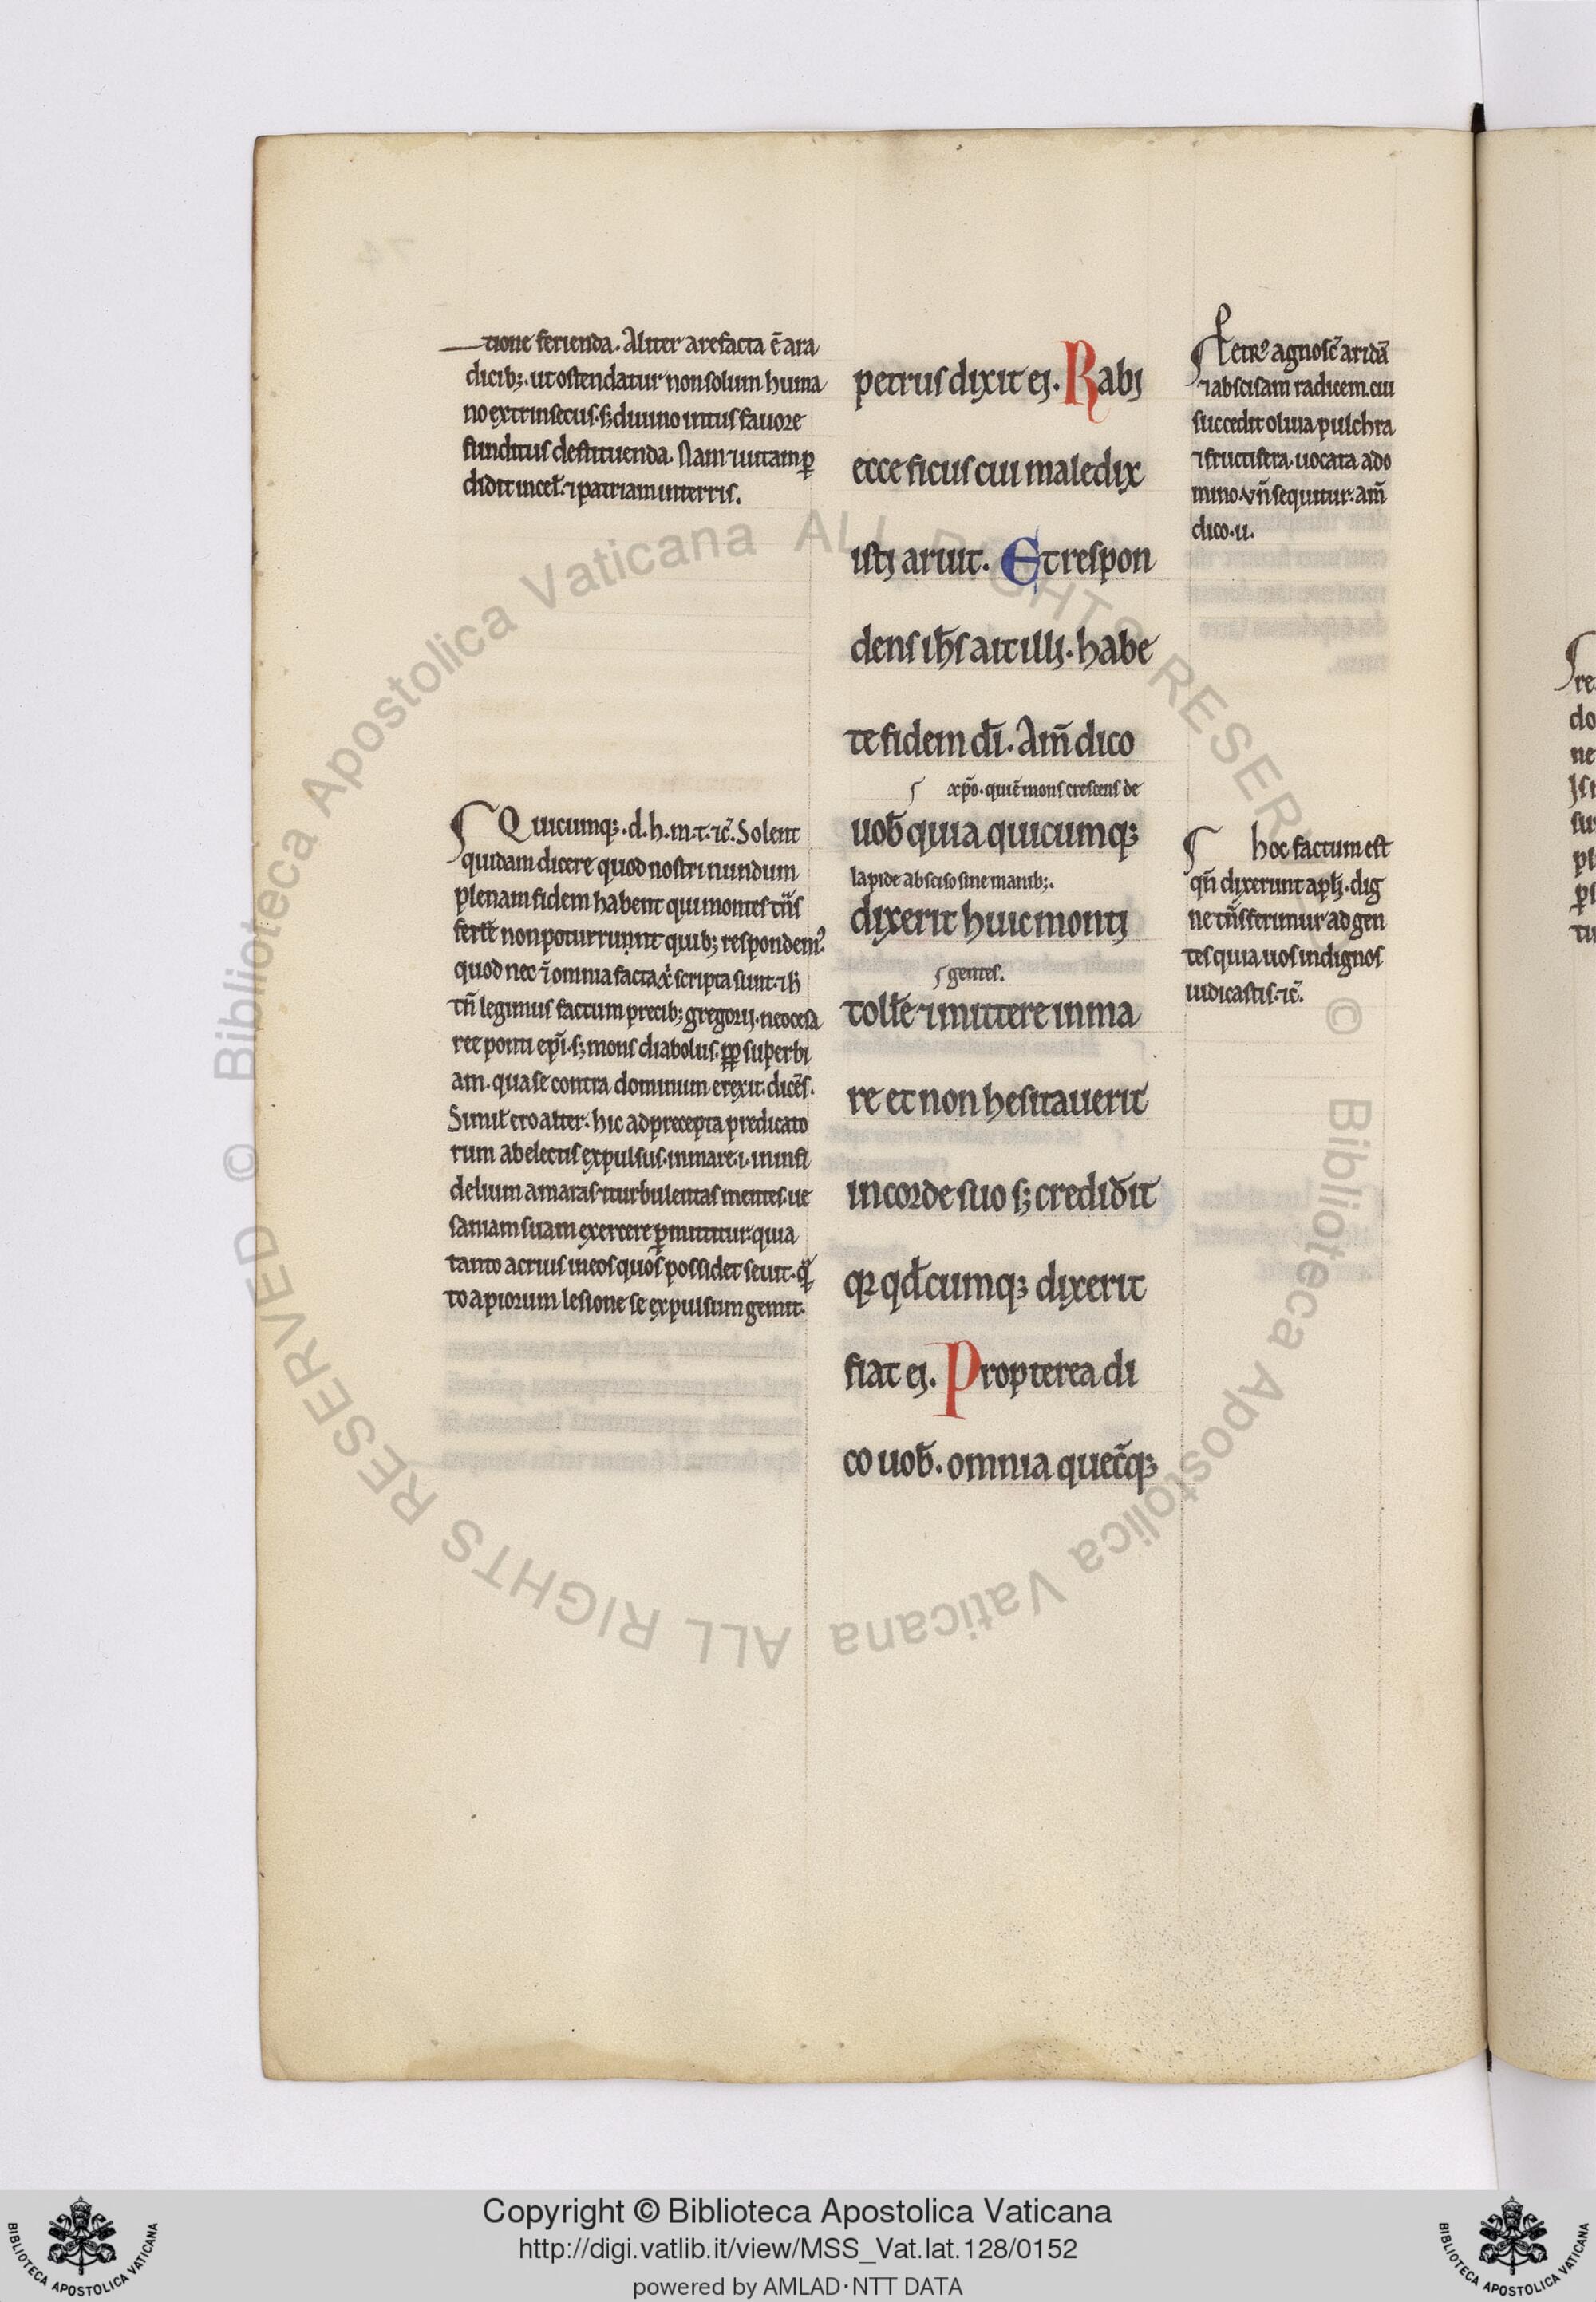 tione ferienda. Aliter arefacta ē ara
dicib;. ut ostendatur non solum huma
no extrinsecus. s; diuino intus fauore
funditus destituenda. Nam ⁊ uitam ꝑ
didit in cel̄. ⁊ patriam in terris.
Quicumq;. d. h. m. t. ⁊c̄. Solent
quidam dicere quod nostri nundum
plenam fidem habent qui montes tn̄s
ferr̄e non potuerunt quib; respondem᷒
quod nec ī omnia facta xp̄i scripta sunt. ⁊ h̄
tn̄ legimus factum precib; gregorij. neocesa
ree ponti epī. s; mons diabolus. ꝓp̄ superbi
am. qua se contra dominum erexit. dicēs.
Simil̄ ero alter. hic ad precepta predicato
rum ab electis expulsus. in mare .i. in infi
delium amaras ⁊ turbulentas mentes ue
saniam suam exercere ꝑmittitur: quia
tanto acrius in eos quos possidet seuit. qᷓ
to a piorum lesione se expulsum gemit.
petrus dixit ej. Rabj
ecce ficus cui maledix
istj aruit. Et respon
dens ih̄s ait illj. habe
te fidem dī. Am̄ dico
xp̄o. qui ē mons crescens de
uob̄ quia quicumq;
lapide absciso sine manib;.
dixerit huic montj
gentes.
toll̄e ⁊ mittere in ma
re et non hesitauerit
in corde suo s; credid̄it
qꝛ qd̄cumq; dixerit
fiat ej. Propterea di
co uob̄. omnia quec̄q;
Petr᷒ agnosc̄ aridā
⁊ abscisam radicem. cui
succedit oliua pulchra
⁊ fructifera. uocata a do
mino. vn̄ sequitur: am̄
dico. u.
hoc factum est
qn̄ dixerunt aplj̄. dig
ne tn̄sferimur ad gen
tes quia uos indignos
iudicastis. ⁊c̄.
© Biblioteca Apostolica Vaticana ALL RIGHTS RESERVED
© Biblioteca Apostolica Vaticana ALL RIGHTS RESERVED
Copyright © Biblioteca Apostolica Vaticana
http://digi.vatlib.it/view/MSS_Vat.lat.128/0152
powered by AMLAD·NTT DATA
BIBLIOTECA APOSTOLICA VATICANA
BIBLIOTECA APOSTOLICA VATICANA